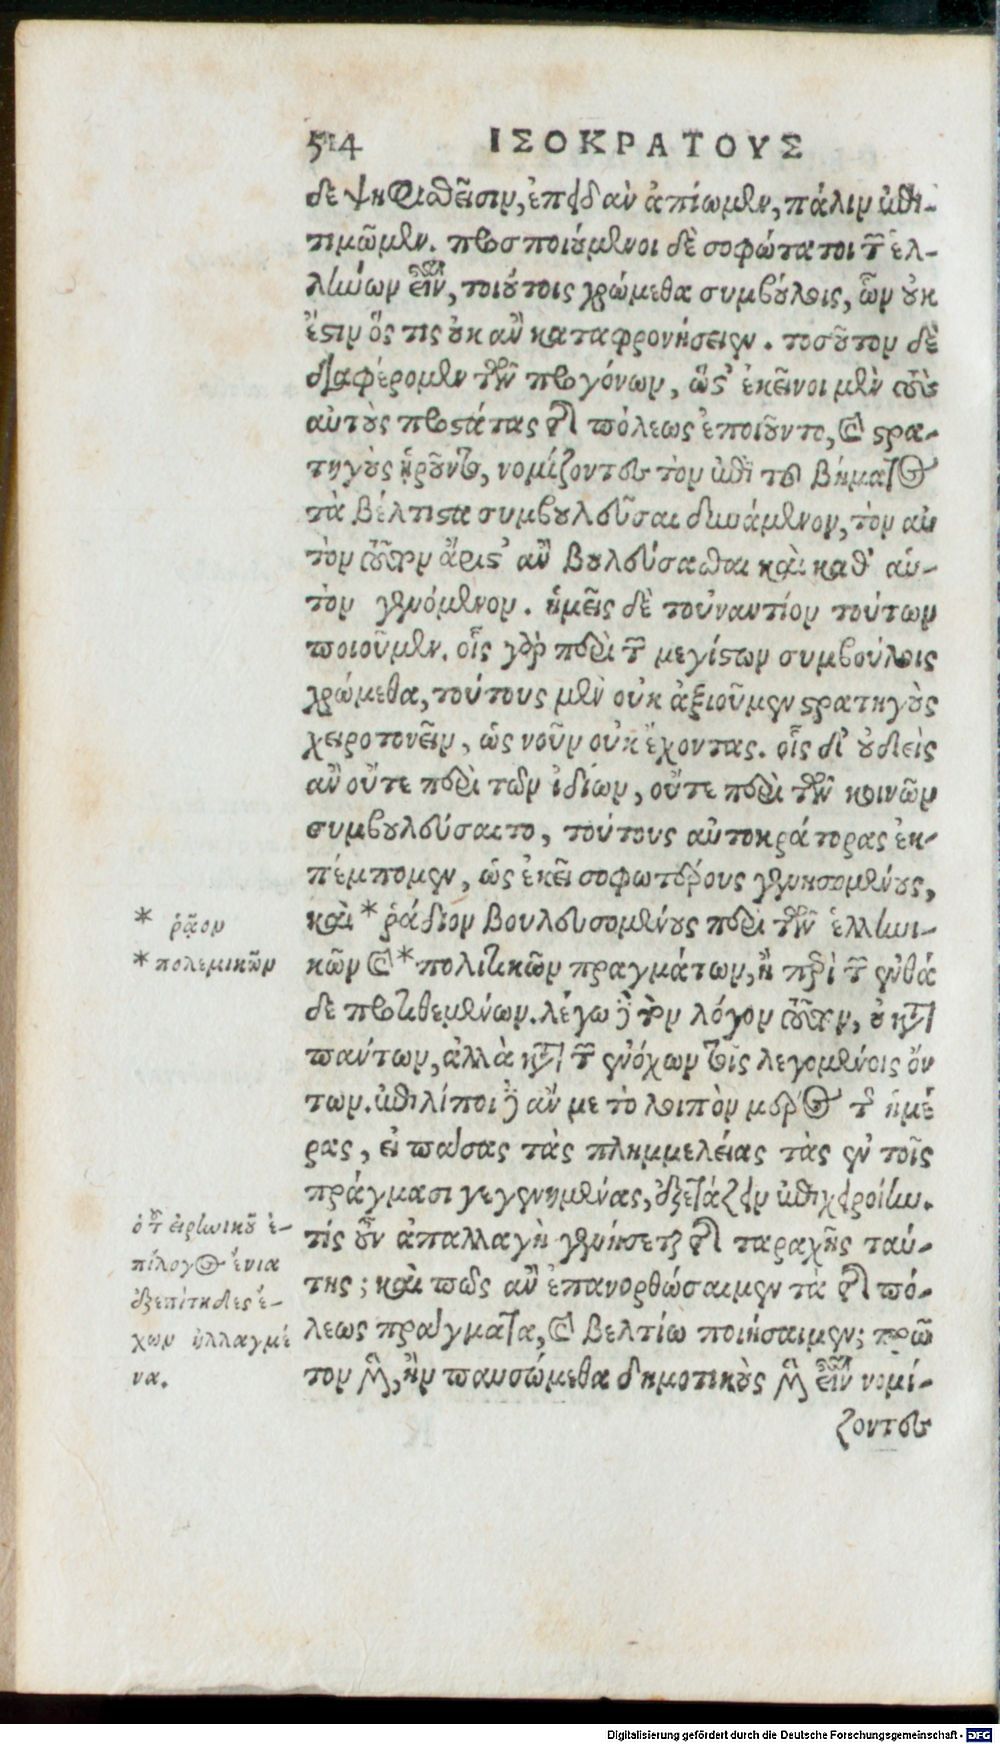 514 ΙΣΟΚΡΑΤΟΥΣ
δε ψηφισθεῖσιν, ἐπειδὰν ἀπίωμεν, πάλιν ἐπι-
τιμῶμεν. προσποιούμενοι δὲ σοφώτατοι τῶν ἑλ-
λήνων εἶναι, τοιούτοις χρώμεθα συμβούλοις, ὧν οὐκ
ἔστιν ὅς τις οὐκ ἂν καταφρονήσειεν. τοσοῦτον δὲ
διαφέρομεν τῶν προγόνων, ὥστ' ἐκεῖνοι μὲν τοὺς
αὐτοὺς προστάτας τῆς πόλεως ἐποιοῦντο, καὶ στρα-
τηγοὺς ᾑροῦντο, νομίζοντες τὸν ἐπὶ τοῦ βήματος
τὰ βέλτιστα συμβουλεῦσαι δυνάμενον, τὸν αὐ
τὸν τοῦτον ἄριστ' ἂν βουλεύσασθαι καὶ καθ' αὑ-
τὸν γενόμενον. ἡμεῖς δὲ τοὐναντίον τούτων
ποιοῦμεν. οἷς γὰρ περὶ τῶν μεγίστων συμβούλοις
χρώμεθα, τούτους μὲν οὐκ ἀξιοῦμεν στρατηγοὺς
χειροτονεῖν, ὡς νοῦν οὐκ ἔχοντας. οἷς δ' οὐδεὶς
ἂν οὔτε περὶ τῶν ἰδίων, οὔτε περὶ τῶν κοινῶν
συμβουλεύσαιτο, τούτους αὐτοκράτορας ἐκ-
πέμπομεν, ὡς ἐκεῖ σοφωτέρους γενησομένους,
καὶ * ῥάδιον βουλευσομένους περὶ τῶν ἑλληνι-
κῶν καὶ * πολιτικῶν πραγμάτων, ἢ περὶ τῶν ἐνθά
δε προτιθεμένων. λέγω δὲ τὸν λόγον τοῦτον, οὐ κατὰ
πάντων, ἀλλὰ κατὰ τῶν ἐνόχων τοῖς λεγομένοις ὄν
των. ἐπιλίποι δ' ἄν με τὸ λοιπὸν μέρος τῆς ἡμέ
ρας, εἰ πάσας τὰς πλημμελείας τὰς ἐν τοῖς
πράγμασι γεγενημένας, ἐξετάζειν ἐπιχειροίην.
τίς οὖν ἀπαλλαγὴ γενήσεται τῆς ταραχῆς ταύ-
της; καὶ πῶς ἂν ἐπανορθώσαιμεν τὰ τῆς πό-
λεως πράγματα, καὶ βελτίω ποιήσαιμεν; πρῶ
τον μὲν, ἢν παυσώμεθα δημοτικοὺς μὲν εἶναι νομί-
ζοντες
* ῥᾷον
* πολεμικῶν
ὁ τοῦ εἰρηνικοῦ ἐ-
πίλογος ἔνια
ἐξεπίτηδες ἔ-
χων ἠλλαγμέ
να.
Digitalisierung gefördert durch die Deutsche Forschungsgemeinschaft - DFG